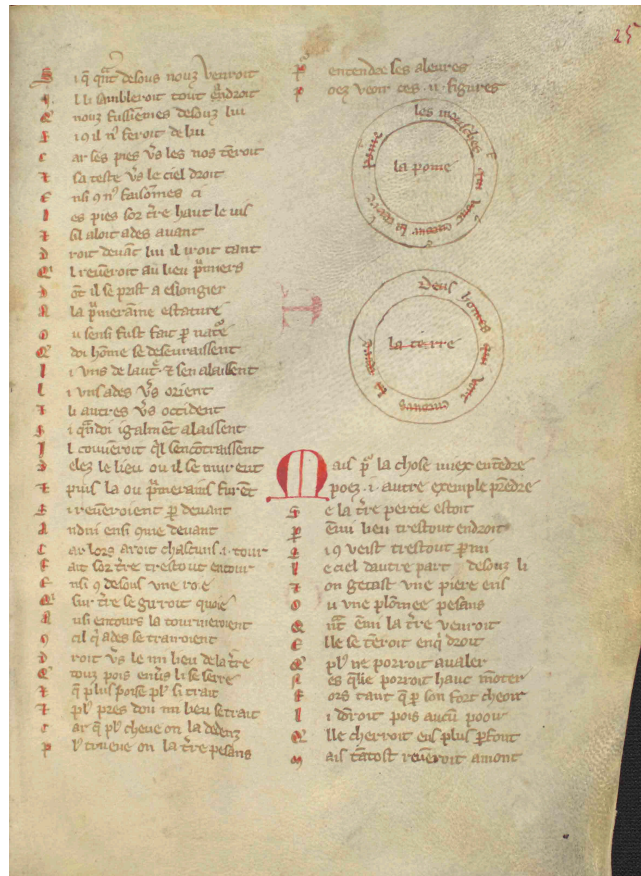 25
Si q̃ qñt desous nouz venroit
Il li sambleroit tout endroit
Q̃ nouz fussiemes desouz lui
Si 9 il n̾ feroit de lui
Car ses pies v̾s les nos t̾eroit
Et sa teste v̾s le ciel droit
Ensi 9 n9 faisomes ci
Les pies sor t̾re haut le vis
Et sil aloit ades avant
Droit devãt lui il iroit tant
Q̃l reveñroit au lieu p̾miers
Dõt il se prist a eslongier
A la p̾meraine estature
Ou sensi fust fait p̱ nat̾e
Q̃ doi hõme se desevraissent
Li uns de laut̾ & sen alaissent
Li uns ades v̾s orient
Et li autres v̾s occident
Si q̃ndoi igalmẽt alaissent
Il couvẽroit q̃l sencõtraissent
Delez le lieu ou il se murent
Et puis la ou p̾merains furẽt
Si revenroient p̱ devant
Andui ensi 9me devant
Car lors aroit chascuns .i. tour
Fait sor t̾re trestout entour
Ensi 9 desous une roe
Q̃ sur t̾re se girroit quoie
Ausi encours la tourneroient
9 cil q̃ ades se trairoient
Droit v̾s le mi lieu de la t̾re
Q̃ touz pois env̾s li se serre
Et q̃ plus poise pl9 si trait
Et pl9 pres dou mi lieu se trait
Car q̃ pl9 cheve on la dedenz
Pl9 trueve on la t̾re pesans
Pentendre les aleures
Poez veoir ces .ii. figures
les mousches qui vont entour la terre pome
la pome
Deus homes qui vont entour la terre
la terre
Mais p̾ la chose miex entẽdre
poez .i. autre exemple prẽdre
Se la t̾re percie estoit
Pẽmi lieu trestout endroit
Si 9 veist trestout p̱mi
Le ciel dautre part desouz li
Et on getast une piere ens
Ou une plõmee pesans
Quãt ẽmi la t̾re venroit
Elle se tẽroit enq̃ droit
Q̃ pl9 ne porroit avaler
Nes q̃lle porroit haut mõter
Fors tant q̃ p̱ son fort cheoir
Li dõroit pois aucũ pooir
Q̃lle cherroit ens plus p̱font
Mais tãtost revẽroit amont